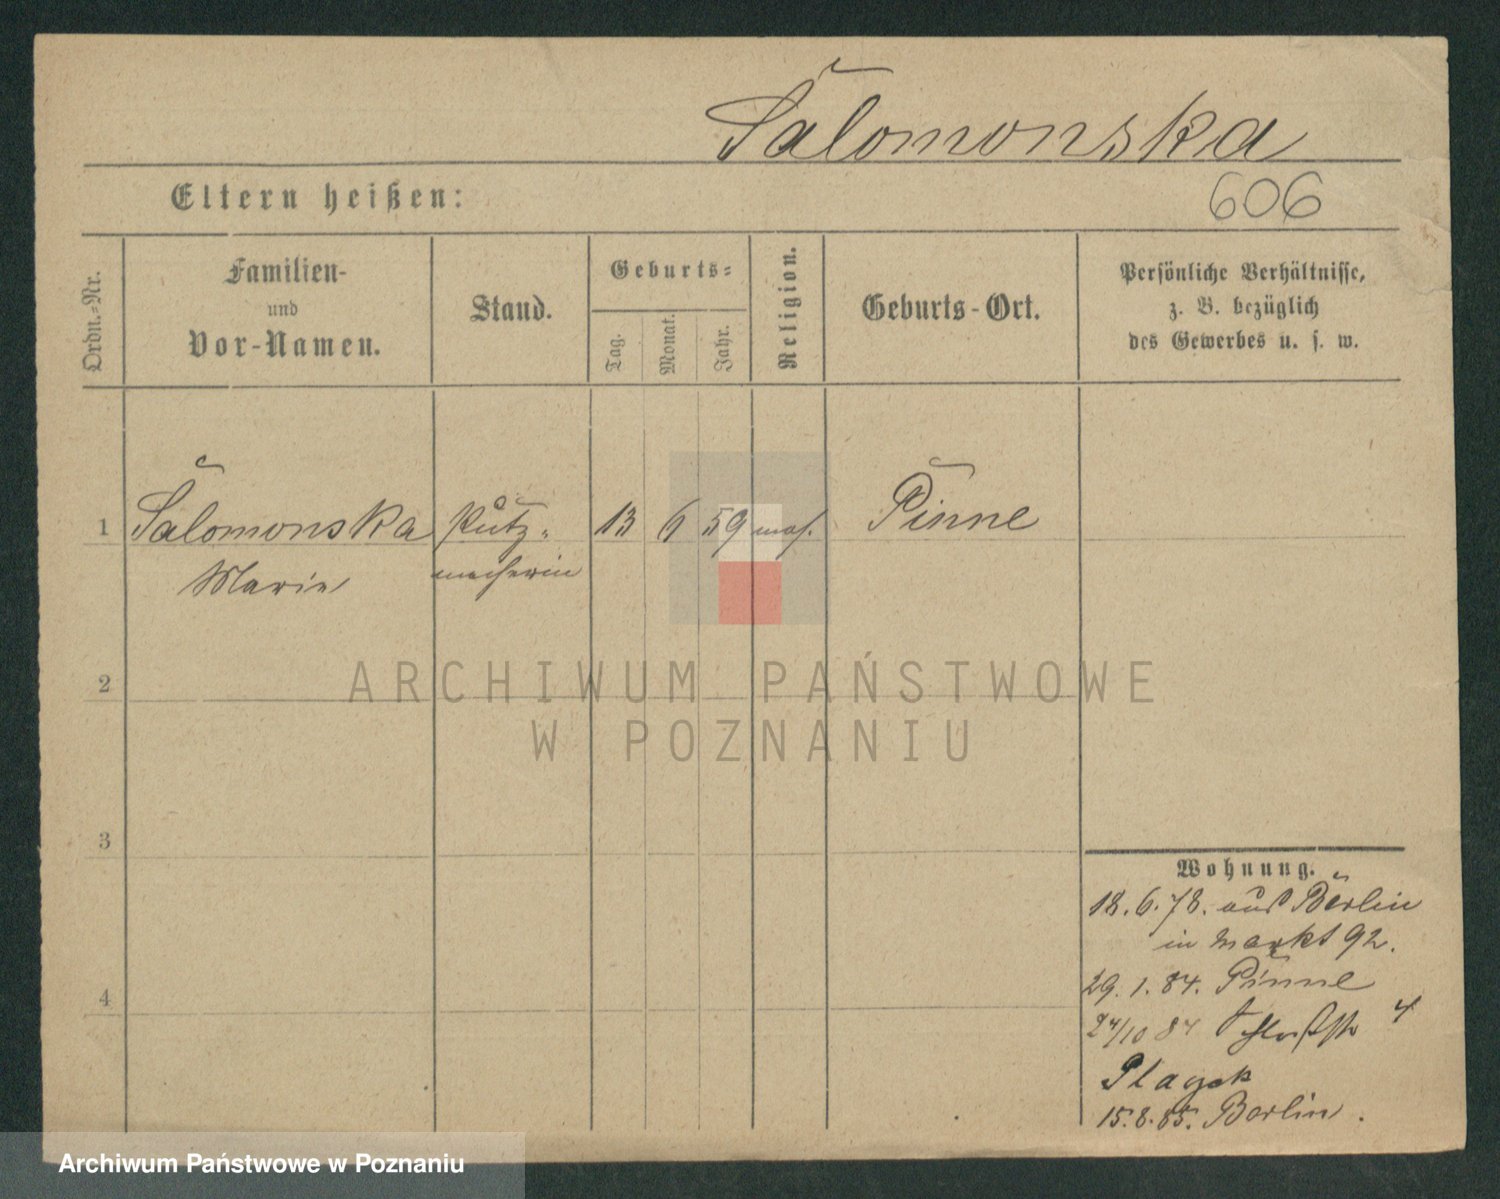 Salomonska
606
Eltern heißen:
Ordn.-Nr.
Familien-
und
Vor-Namen.
Stand.
Geburts-
Tag.
Monat.
Jahr.
Religion.
Geburts-Ort.
Persönliche Verhältnisse,
z. B. bezüglich
des Gewerbes u. s. w.
1 Salomonska Putz- 13 6 59 mos. Pinne
Marie macherin
2
ARCHIWUM PAŃSTWOWE
W POZNANIU
3
4
Wohnung.
18.6.78. aus Berlin
in Markt 92.
29.1.84. Pinne
24/10 84 Schloßstr 4
15.8.85. Berlin.
Archiwum Państwowe w Poznaniu